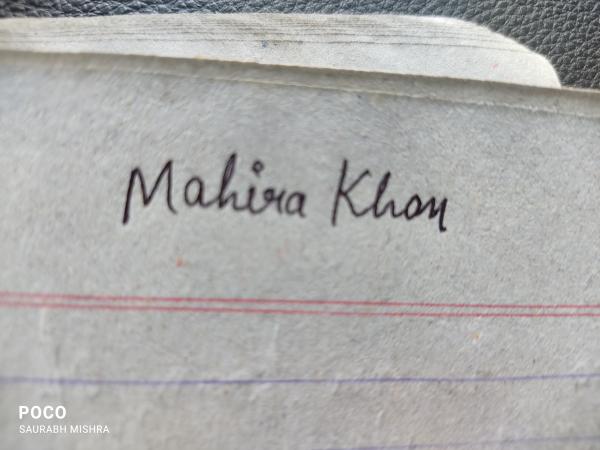 Mahira Khan
POCO
SAURABH MISHRA